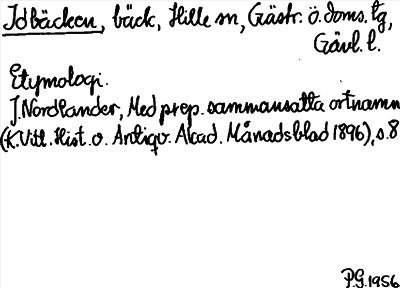 Idbäcken, bäck, Hille sn, Gästr. ö. doms. tg,
Gävl. l.
Etymologi.
J. Nordlander, Med prep. sammansatta ortnamn
(K. Vitt. Hist. o. Antiqv. Akad. Månadsblad 1896), s. 8
P.G. 1956